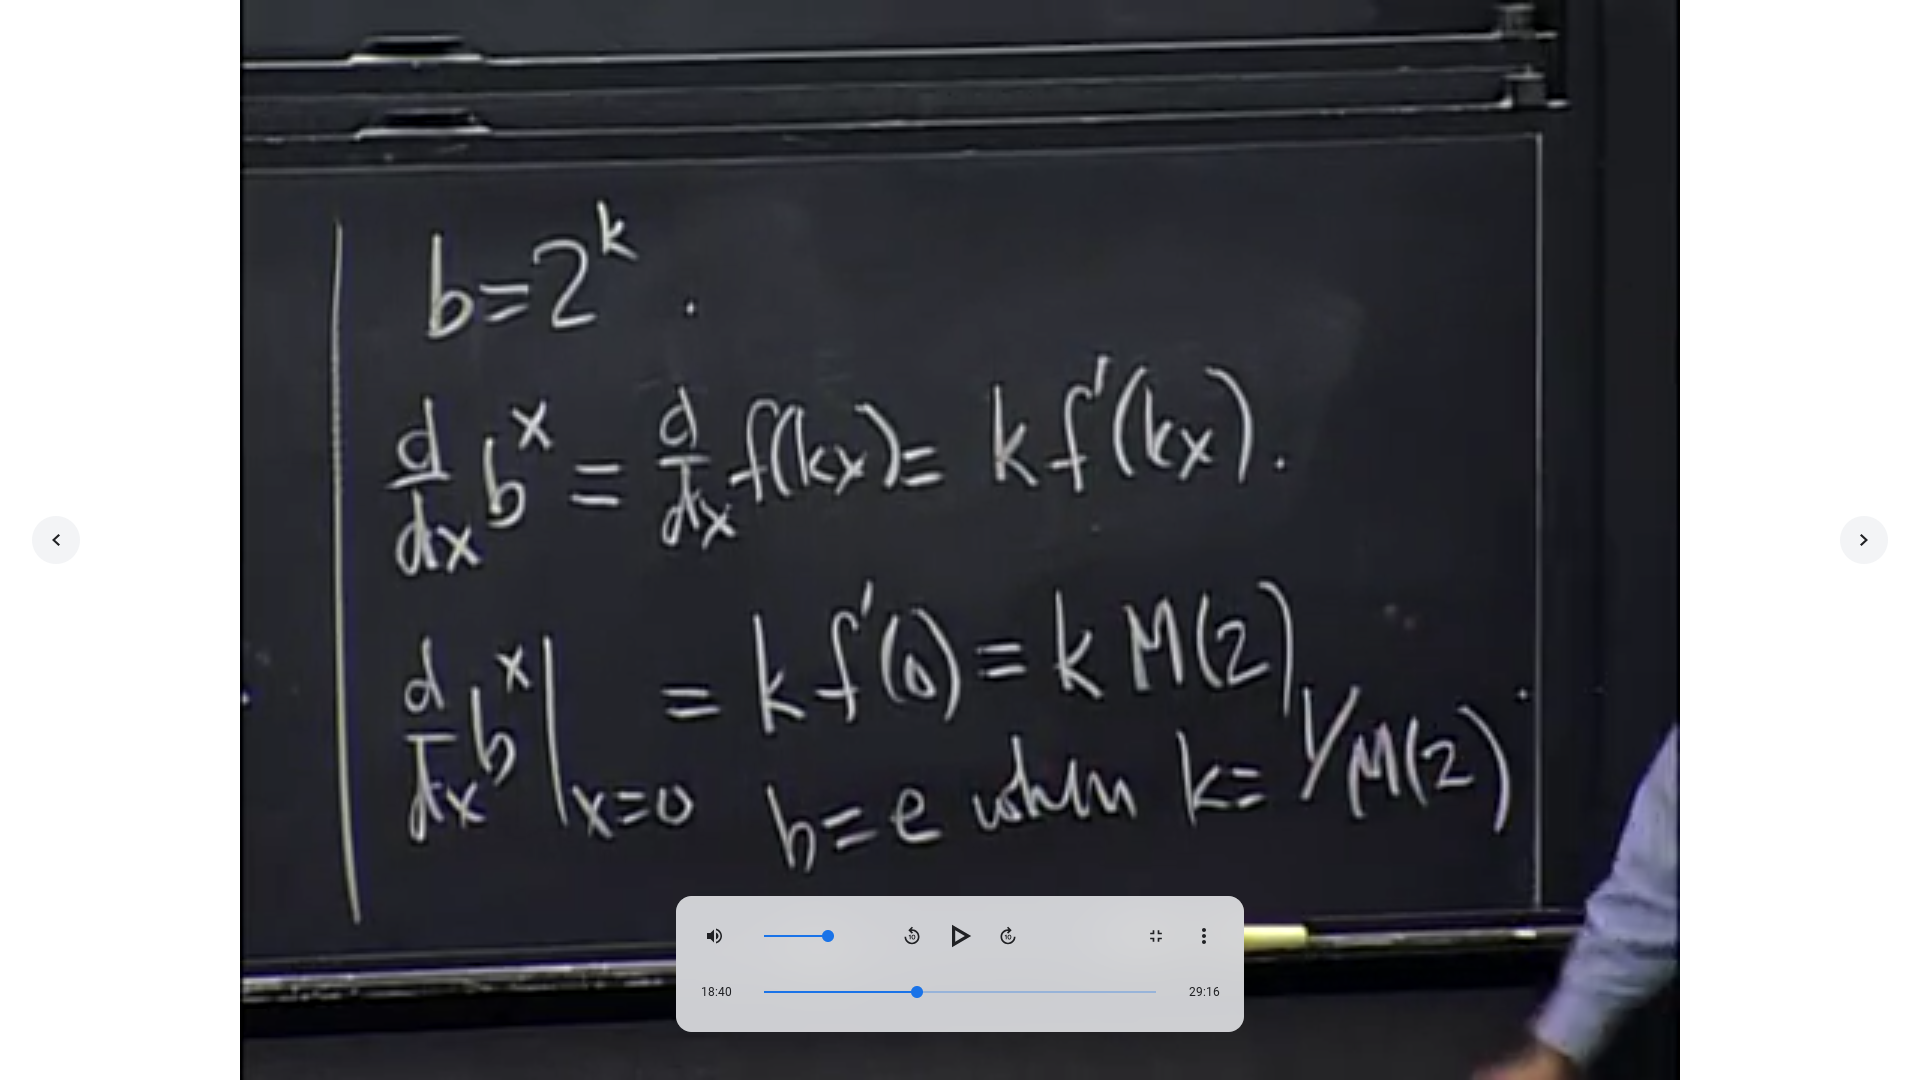 b=2^k .
d/dx b^x = d/dx f(kx) = k f'(kx).
d/dx b^x |x=0 = k f'(0) = k M(2)
b=e when k= 1/M(2)
18:40 29:16